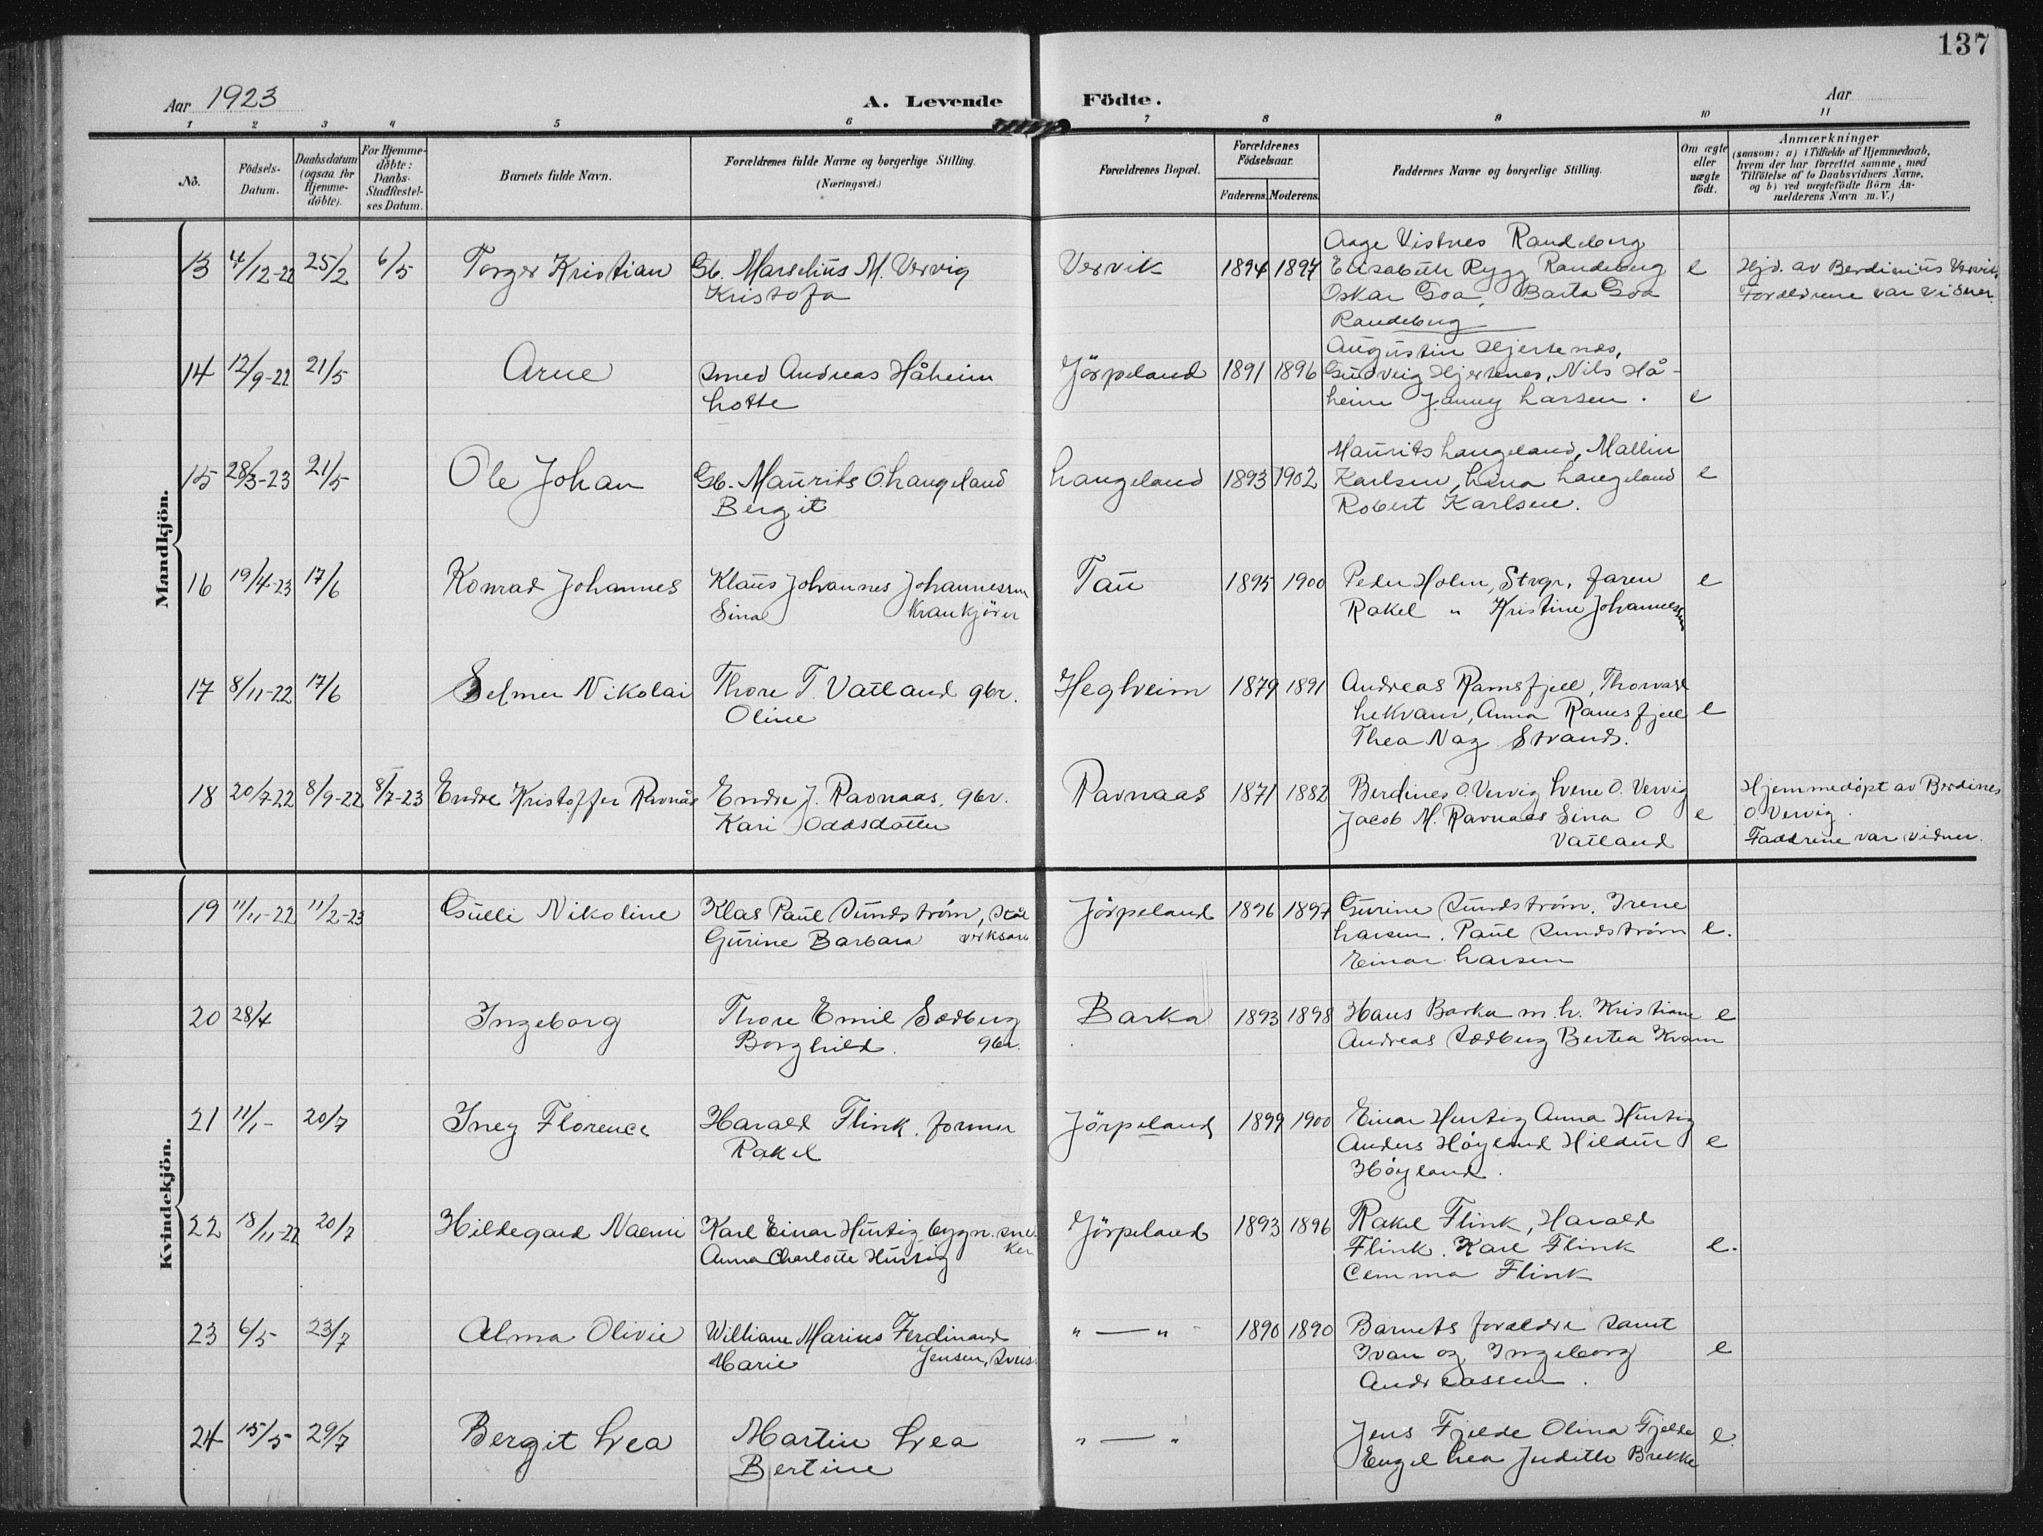 137
Aar 1923
A. Levende Födte.
Aar
1 2 3 4 5 6 7 8 9 10 11
No.
Födsels-
Datum.
Daabsdatum
(ogsaa for
Hjemme-
döbte).
For Hjemme-
döbte:
Daabs-
Stadfæstel-
ses Datum.
Barnets fulde Navn.
Forældrenes fulde Navne og borgerlige Stilling.
(Næringsvei.)
Forældrenes Bopæl.
Forældrenes
Födselsaar.
Faderens. Moderens.
Faddernes Navne og borgerlige Stilling.
Om ægte
eller
uægte
födt.
Anmærkninger
(saasom: a) i Tilfælde af Hjemmedaab,
hvem der har forrettet samme, med
Tilföielse af to Daabsvidners Navne,
og b) ved uægtefödte Börn An-
melderens Navn m. V.)
Mandkjön.
13 4/12-22 25/2 6/5 Torger Kristian
Gb. Marselius M. Vervig
Kristofa
Vervik 1894 1897
Aage Vistnes Randeberg
Elisabeth Rygg Randeberg
Oskar Goa, Barta Goa
Randeberg
e
Hjd. av Berdinius Vervik
Foreldrene var vidner.
14 12/9-22 21/5 Arne
Smed Andreas Håheim
Lotte
Jörpeland 1891 1896
Augustin Hjertenes,
Gudveig Hjertenes, Nils Hå-
heim Jenny Larsen.
e
15 28/3-23 21/5 Ole Johan
Gb. Maurits O Langeland
Bergit
Langeland 1893 1902
Maurits Langeland, Mallin
Karlsen, Lina Langeland
Robert Karlsen.
e
16 19/4-23 17/6 Konrad Johannes
Klaus Johannes Johannessen
Sina Krankjörer
Tau 1895 1900
Peder Holm, Stvgr,
Rakel " Kristine Johannessen
e
17 8/11-22 17/6 Selmer Nikolai
Thore T. Vatland gbr.
Oline
Heglheim 1879 1891
Andreas Ramsfjell, Thorvald
Lekvam, Anna Ramsfjell
Thea Nag Strand.
e
18 20/7-22 8/9-22 8/7-23 Endre Kristoffer Ravnås
Endre J. Ravnaas, gbr.
Kari Oddsdatter
Ravnaas 1871 1882
Berdines O. Vervig Lvene O. Vervig
Jacob M. Ravnaas Sina O
Vatland
e
Hjemmedöpt av Berdines
O. Vervig.
Faddrene var vidner.
Kvindekjön.
19 11/11-22 11/2-23 Gulli Nikoline
Klas Paul Sundström, Stål
Gurine Barbara verksarb
Jörpeland 1896 1897
Gurine Sundström. Irene
Larsen. Paul Sundström
Einar Larsen
e.
20 28/4 Ingeborg
Thore Emil Södberg
Borghild. gbr.
Barka 1893 1898
Hans Barka m. h. Kristiane
Andreas Södberg Bertea Kvam
e
21 11/1- 20/7 Iney Florence
Harald Flink. former
Rakel
Jörpeland 1899 1900
Einar Hurtig Anna Hurtig
Anders Höyland Hildur
Höyland.
e
22 18/11-22 20/7 Hildegard Naemi
Karl Einar Hurtig bygn. sne-
Anna Charlotte Hurtig ker
Jörpeland 1893 1896
Rakel Flink, Harald
Flink. Karl Flink
Flink
e.
23 6/5 23/7 Alma Olivie
William Marius Ferdinand
Marie Jensen,
" — " 1890 1890
Barnets foreldre samt
Ivan og Ingeborg
Andreassen.
e
24 15/5 29/7 Bergit Lea
Martin Lea
Bertine
" — "
Jens Fjelde Olina Fjelde
Engel Lea Judith Brekke
e.